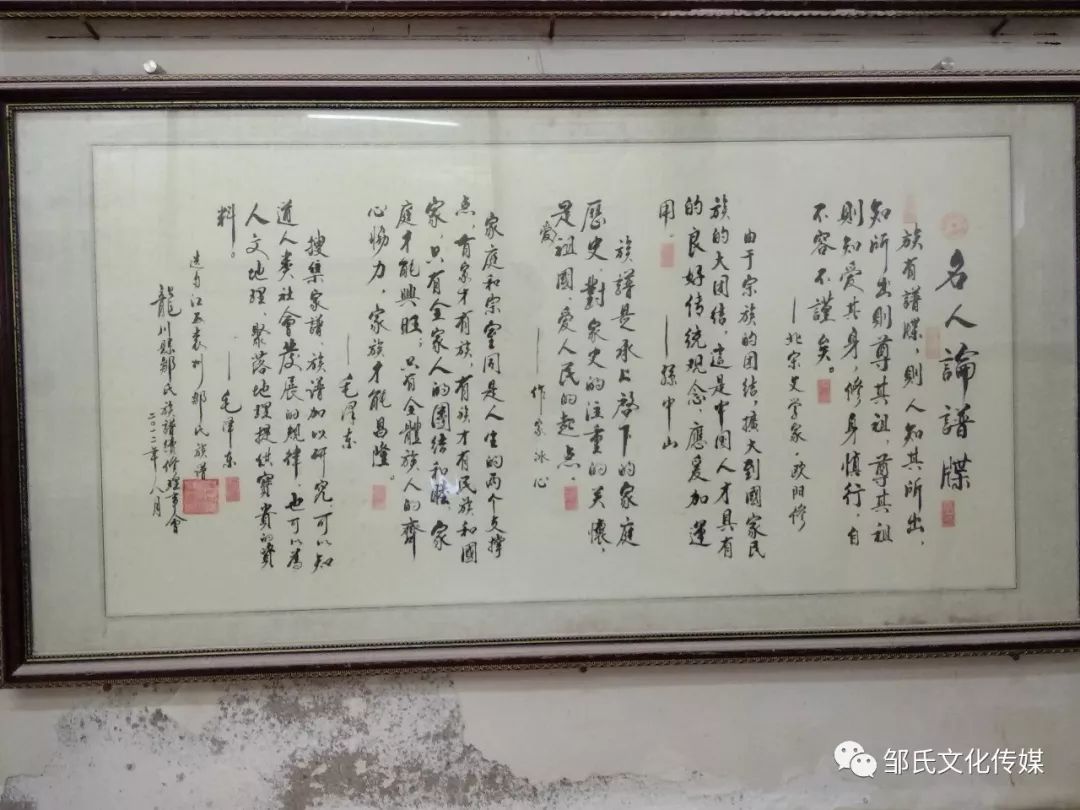 名人論譜牒
族有譜牒，則人知其所出，
知所出則尊其祖，尊其祖
則知爱其身，修身慎行，自
不容不謹矣。
——北宗史学家·欧阳修
由于宗族的团结，擴大到國家民
族的大团结，這是中国人才具有
的良好传统观念，應爰加運
用。
——孫中山
族譜是承上啓下的家庭
歷史，對家史的注重的关懷，
是爱祖國，爱人民的起点。
——作家冰心
家庭和宗室同是人生的两个支撑
点，有家才有族，有族才有民族和國
家，只有全家人的團结和睦，家
庭才能興旺；只有全體族人的齊
心協力，家族才能昌隆。
——毛澤东
搜集家譜、族谱加以研究，可以知
道人类社會發展的规律，也可以為
人文地理，聚落地理提供寶貴的資
料。
——毛澤东
選自江西袁州鄒氏族谱
龍川縣鄒氏族譜續修理事會
二〇一二年八月
邹氏文化传媒